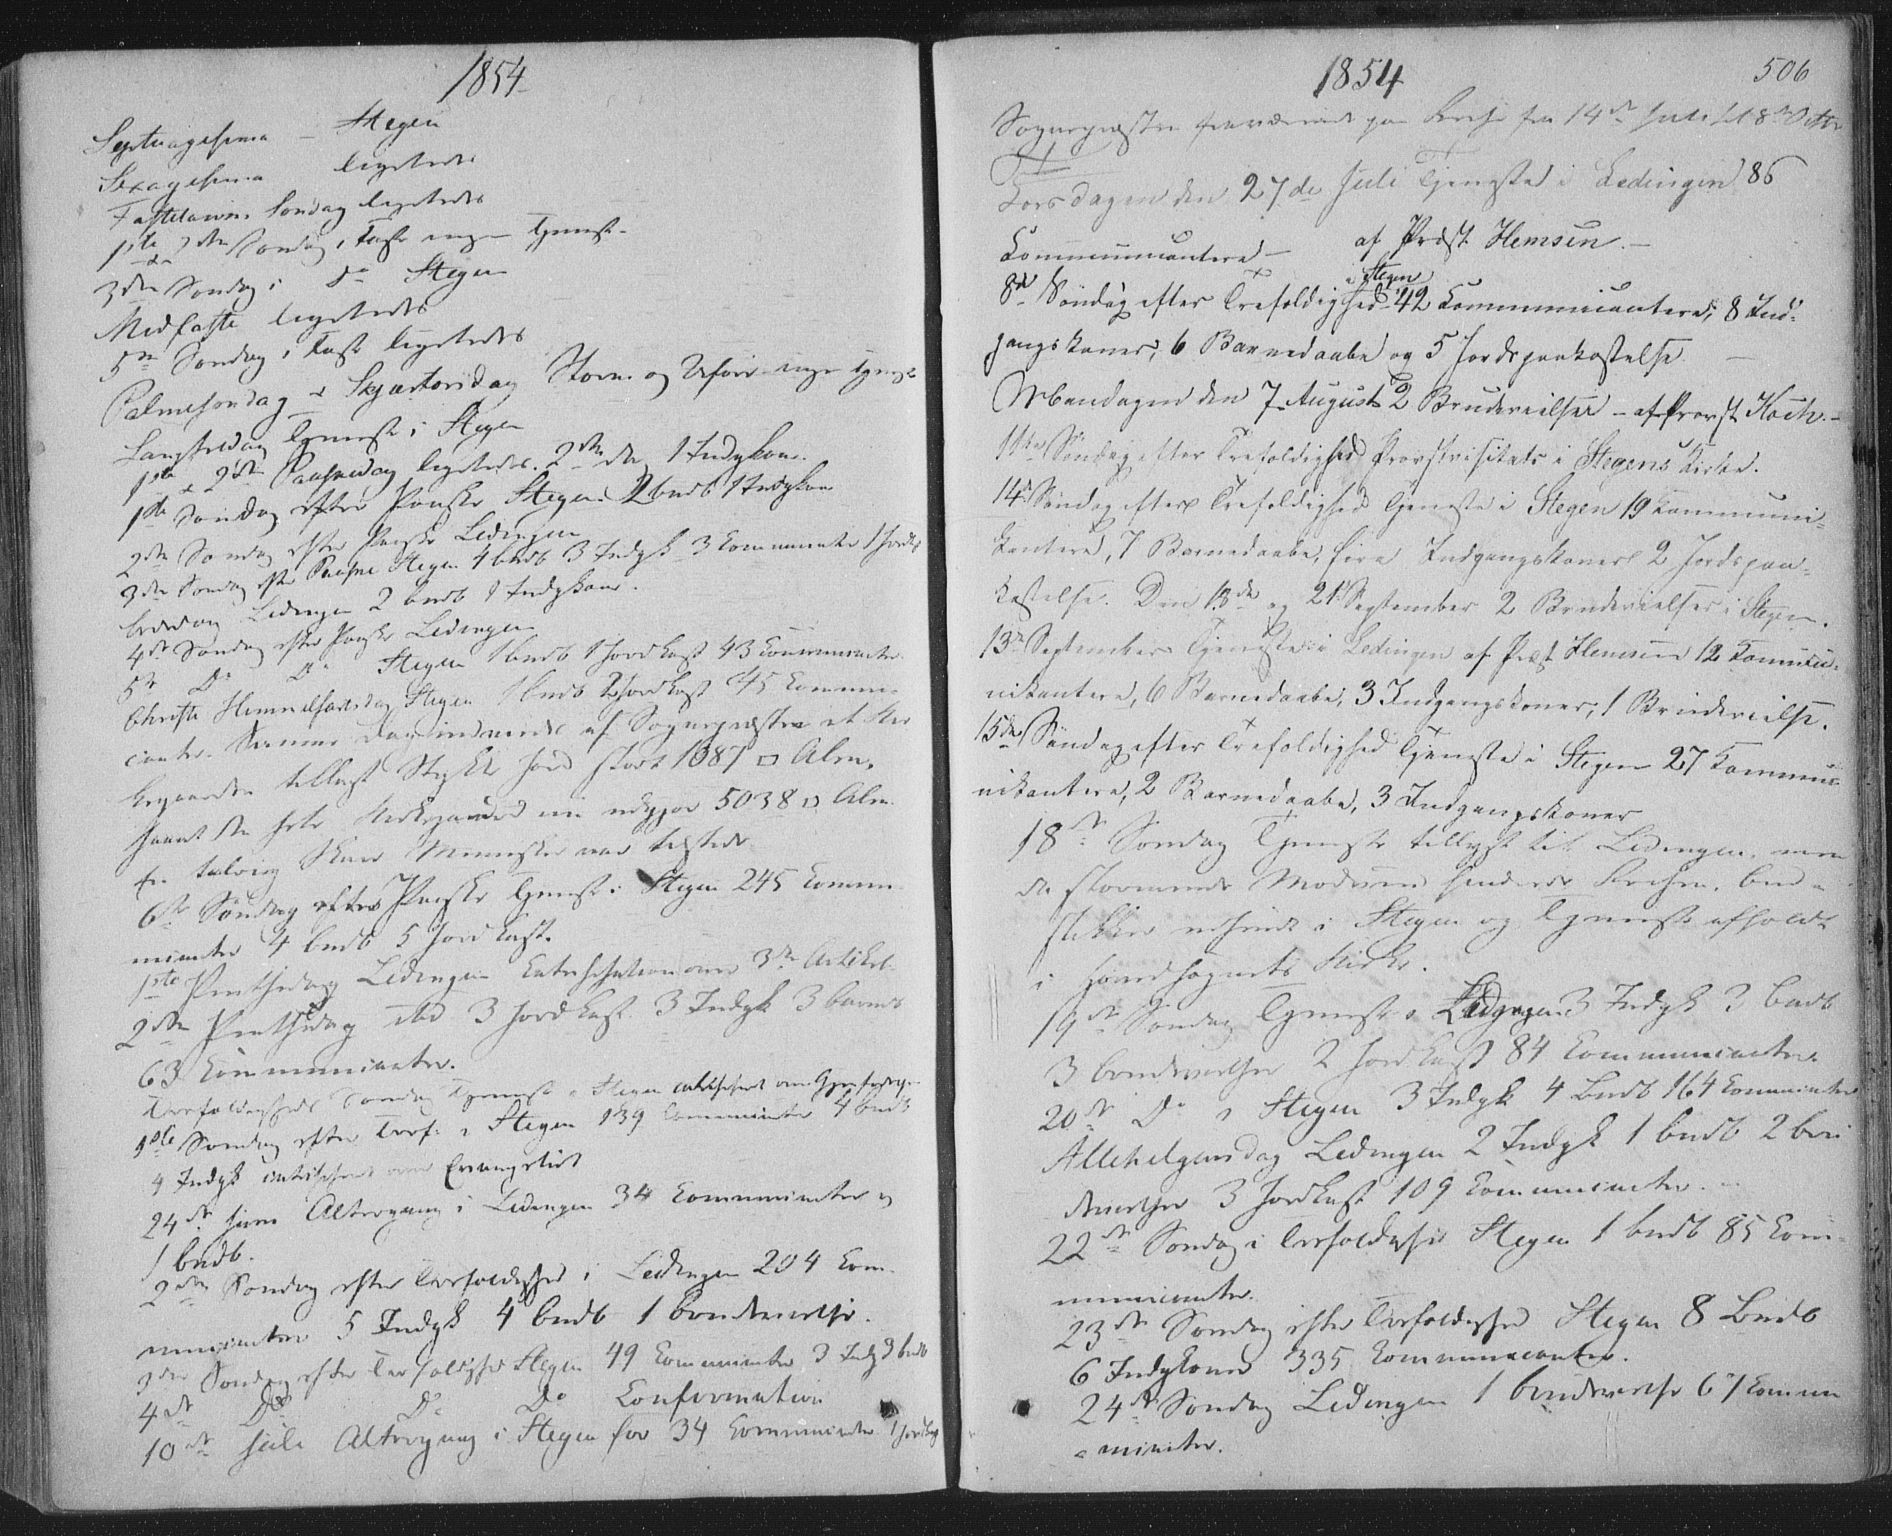 1854
Septuagesima – Stegen
Sexagesima ligeledes
Fastelavns Søndag ligeledes
1ste 2den Søndag i Faste ingen Tjeneste
3die Søndag i do Stegen
Midfaste ligeledes
5te Søndag i Faste ligeledes
Palmesøndag & Skjærtorsdag Storm og Uføre ingen
Langfredag Tjeneste i Stegen
1ste & 2den Paaskedag ligeledes. 2den Dag 1 Indgkone.
1ste Søndag efter Paaske Stegen 2 bndb 1 Indgkone
2den Søndag efter Paaske Ledingen
3die Søndag efter Paaske Stegen 4 bndb 3 Indgk 3 Communicanter 1
Ledingen 2 bndb 1 Indgkone.
4de Søndag efter Paaske Ledingen
5te Do Do Stegen 1 bndb 1 Jordkast 43 Communicanter
Christi Himmelfartsdag Stegen 1 bndb 2 Jordkast 45 Communi-
canter. Samme Dag indviedes af Sognepræsten et Kir
kegaarden tillagt Stykke Jord stort 1087 □ Alen,
saa at den hele Kirkegaard nu udgjør 5038 □ Alen
En talrig Skare Mennesker var tilstede
6te Søndag efter Paaske Tjeneste i Stegen 245 Commu
nicanter 4 bndb 5 Jordkast.
1ste Pintsedag Ledingen Catechisation over 3die Artikel
2den Pintsedag ibd 3 Jordkast. 3 Indgk 3 barned
63 Communicanter.
Trefoldigheds Søndag Tjeneste i Stegen catechiseret over
1ste Søndag efter Tref: i Stegen 139 Communicanter 4 bndb
4 Indgk catechiseret over Evangeliet
24de Juni Altergang i Ledingen 34 Communicanter og
1 bndb.
2den Søndag efter Trefoldighed i Ledingen 204 Com-
municanter 5 Indgk 4 bndb 1 brudevielse.
3die Søndag efter Trefoldighed Stegen 49 Communicanter 3 Indg 3 bndb
4de Do Do Do Confirmation
10de Juli Altergang i Stegen for 34 Communicanter 1
1854
506
Sognepræsten fraværende paa Reise fra 14de Juli til 8de Octbr
Torsdagen den 27de Juli Tjeneste i Ledingen 86
Communicantere – af Præst Hemsen. –
i Stegen
8de Søndag efter Trefoldighed 42 Communicantere, 8 Ind-
gangskoner, 6 Barnedaabe og 5 Jordspaakastelse. –
Mandagen den 7 August 2 Brudevielser – af Provst Koch. –
11te Søndag efter Trefoldighed Provstivisitats i Stegens Kirke.
14de Søndag efter Trefoldighed Tjeneste i Stegen 19 Kommuni-
kantere, 7 Barnedaabe, fire Indgangskoner 2 Jordspaa-
kastelse. Den 13de og 21de September 2 Brudevielser i Stegen.
13de September Tjeneste i Ledingen af Præst Hemsen 12 Kommu-
nikantere, 6 Barnedaabe, 3 Indgangskoner, 1 Brudevielse.
15de Søndag efter Trefoldighed Tjeneste i Stegen 27 Kommu-
nikantere, 2 Barnedaabe, 3 Indgangskoner
18de Søndag Tjeneste tillyst til Ledingen, men
da stormende Modvind hindrede Reisen, bud-
stikke udsendt i Stegen og Tjeneste afholdt
i Hovedsognets Kirke.
19de Søndag Tjeneste i Ledingen 3 Indgk 3 bndb
3 brudevielser 2 Jordkast 84 Communicanter
20de Do i Stegen 3 Indgk 4 Bndb 164 Communicanter
Allehelgensdag Ledingen 2 Indgk 1 bndb 2 bru
devielser 3 Jordkast 109 Communicanter. –
22de Søndag i Trefoldighed Stegen 1 bndb 85 Com-
municanter.
23de Søndag efter Trefoldighed Stegen 8 Bndb
6 Indgkoner 335 Communicanter.
24de Søndag Ledingen 1 brudevielse 61 Commu
nicanter.